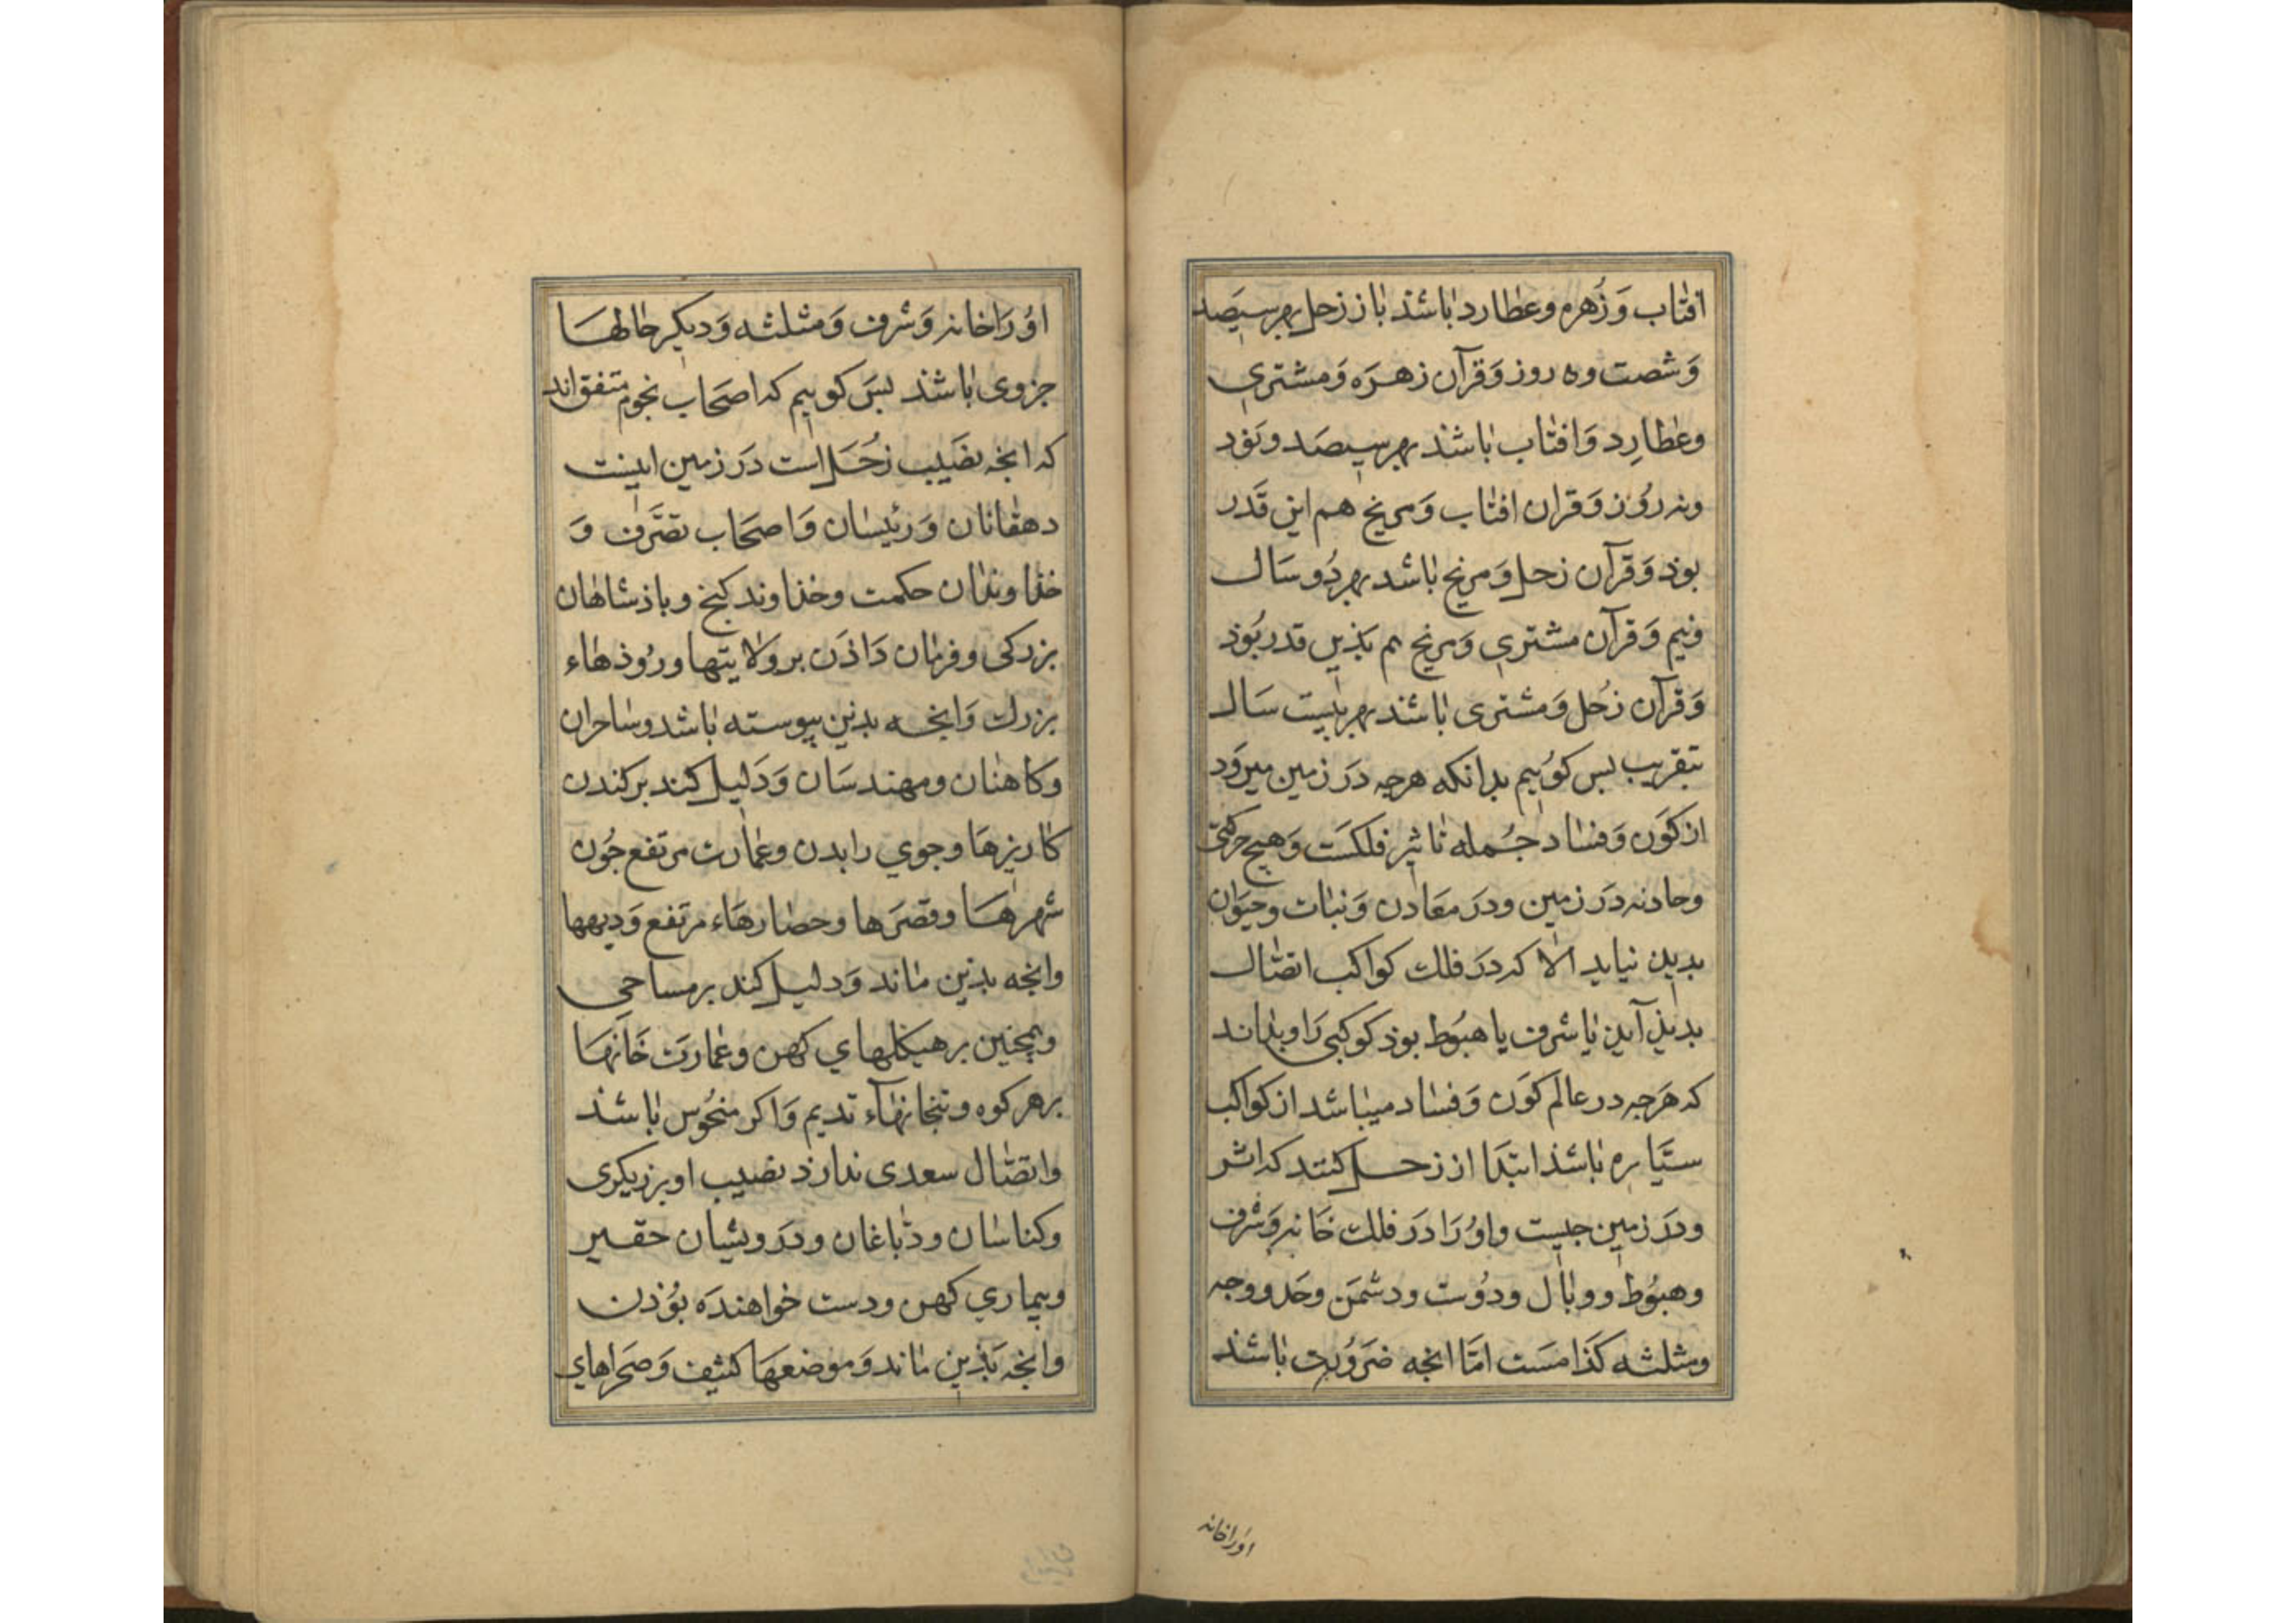 افتاب وَ زُهره و عطارد باشند باز زحل بهر سیصد
وَ شصت وه روز وَ قرآن زهرَه وَ مشتری
و عطارِد وَ افتاب باشند بهر سیصَد و نَود
ونه روُز وَ قران افتاب وَ مریخ هم این قَدر
بوذ وَ قرآن زحل وَ مریخ باشد بهر دُو سَال
ونیم وَ قرآن مشتری وَ مریخ هم بَذین قدر بُوذ
وَ قرآن زُحل وَ مشتری باشند بهر بیست سَال
بتقریب بس کوُییم بدانکه هرجه دَر زمین میروَد
از کوَن وَ فساد جُمله تاثیر فلکسَت وَ هیچ حرکتی
و حادثه دَر زمین و دَر معَادن وَ نبات و حیَوان
بدید نیاید الا که دَر فلک کواکب اتصال
بدیذ آید یا شرف یا هبوُط بوذ کوکبی رَا و بداند
که هَرجه در عالم کوَن وَ فساد میباشد از کواکب
سیَّاره باشذ ابتدَا از زحل کنند که اثر
و دَر زمین جیست و اوُ رَا دَر فلک خَانه وَ شرف
و هبوُط و وبال و دوُست و دشمَن و حَد و وجه
و مثلثه کذَامسَت امّا انجه ضَروُرت باشذ
اورا خانه
اوُ رَا خانه وَ شرف وَ مثلثه وَ دیکر حالهَا
جزوی باشند بسَ کوییم که اصحَاب نجوم متفق اند
که انجه نصَیب زُحَل است دَر زمین اینست
دهقانان وَ رئیسان وَ اصحَاب تصَرّف وَ
خذاوندان حکمت و خذاوند کنج و باذشاهان
بزرکی و فرمان دَاذَن بر ولایتها و روُذهاء
بزرک وَ انجه بدین پیوسته باشد و ساحران
و کاهنان و مهندسَان وَ دَلیل کند بر کندن
کاریزهَا و جوی رابدن و عمارت مرتفع جُون
شهرهَا و قصَرها و حصارهَاء مرتفع وَ دیهها
وانجه بذین ماند وَ دلیل کند بر مساحی
و همچنین بر هیکلهای کهن و عمارَت خَانهَا
بر هر کوه و بتخانهاَء قدیم وَ اکر منحُوس باشند
و اتصّال سعدی ندارذ نصیب او برزیکری
و کناسان و دبّاغان و دَرویشان حقیر
و بیماری کهن و دست خواهندَه بوُذن
وانجه بَذین ماند وَ موضعهَا کثیف وَ صَحراهای